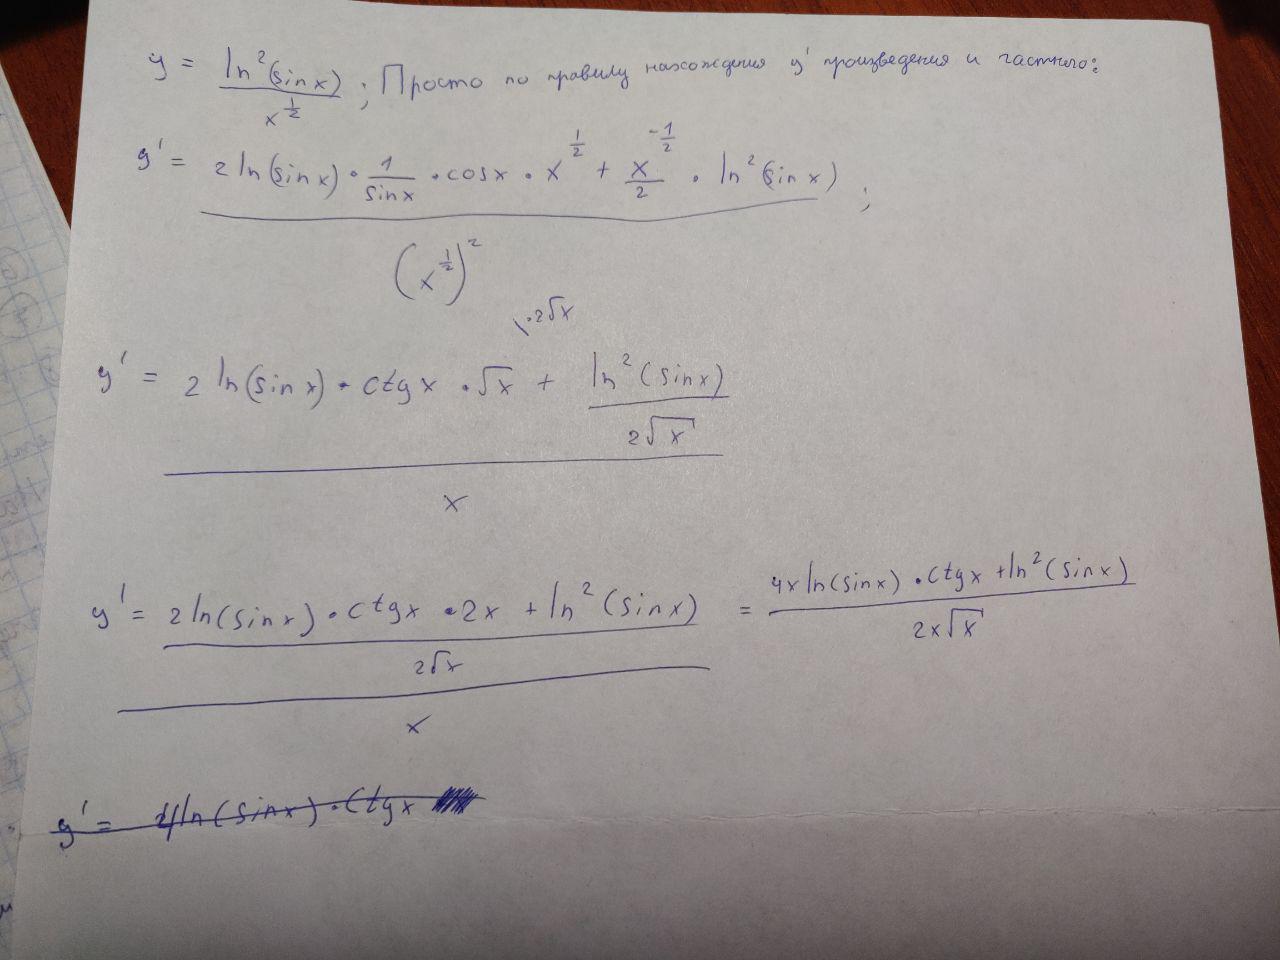 y = ln²(sin x) / x^(1/2) ; Просто по правилу нахождения y' произведения и частного:
y' = (2 ln(sin x) · 1/sin x · cos x · x^(1/2) + x^(-1/2)/2 · ln²(sin x)) / (x^(1/2))² ;
\·2√x
y' = (2 ln(sin x) · ctg x · √x + ln²(sin x)/(2√x)) / x
y' = ((2 ln(sin x) · ctg x · 2x + ln²(sin x)) / (2√x)) / x = (4x ln(sin x) · ctg x + ln²(sin x)) / (2x√x)
y' = ln(sin x) · ctg x